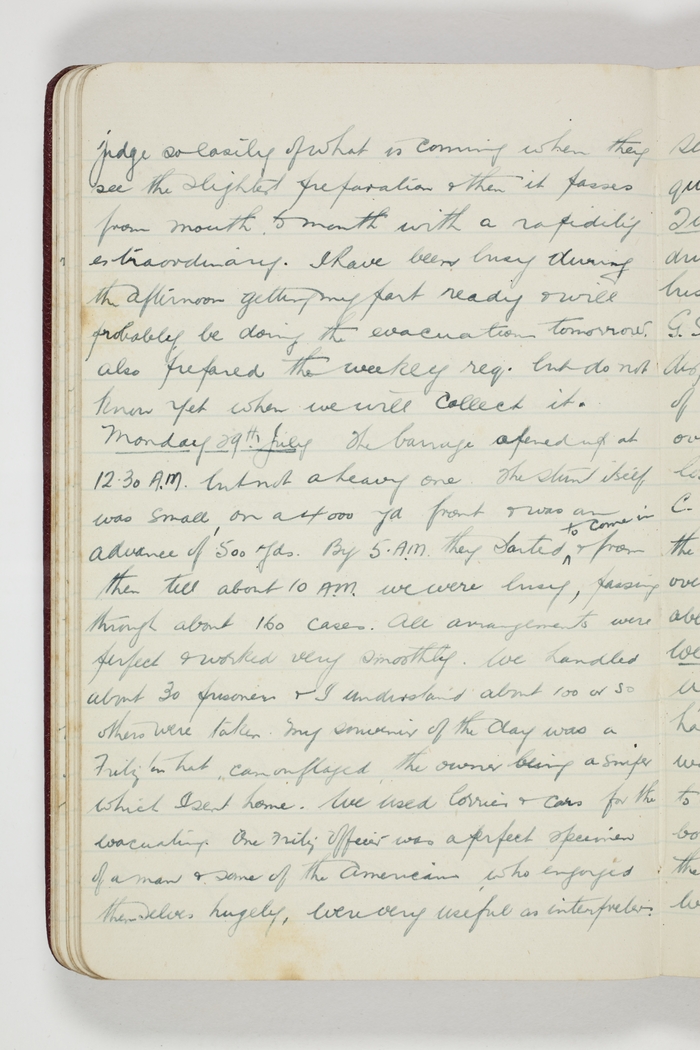 judge so easily of what is coming when they
see the slightest preparation & then it passes
from mouth to mouth with a rapidity
extraordinary. I have been busy during
the afternoon getting my part ready & will
probably be doing the evacuation tomorrow.
also prepared the weekly req. but do not
know yet when we will collect it.
Monday 29th July The barrage opened up at
12.30 A.M. but not a heavy one. The stunt itself
was small, on a 4000 yd front & was an
advance of 500 yds. By 5. A.M. they started to come in & from
then till about 10 A.M. we were busy, passing
through about 160 cases. All arrangements were
perfect & worked very smoothly. We handled
about 30 prisoners & I understand about 100 or so
others were taken. My souvenir of the day was a
Fritz tin hat, camouflaged, the owner being a sniper
which I sent home. We used lorries & cars for the
evacuating. One Fritz Officer was a perfect specimen
of a man & some of the Americans, who enjoyed
themselves hugely, were very useful as interpreters.